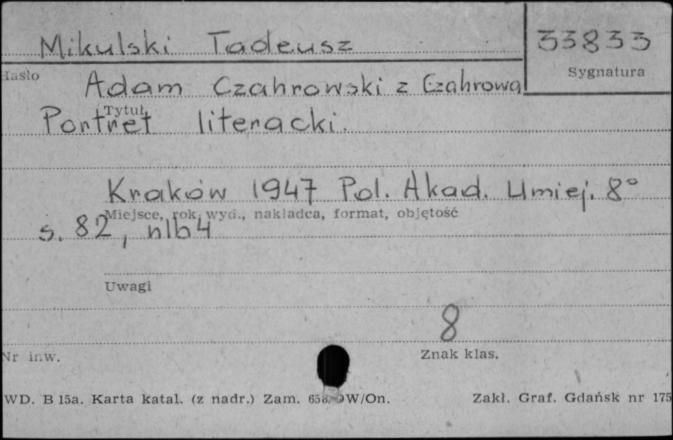 Mikulski Tadeusz
33833
Hasło
Sygnatura
Adam Czahrowski z Czahrowa
Tytuł
Portret literacki.
Kraków 1947 Pol. Akad. Umiej. 8°
Miejsce, rok wyd., nakładca, format, objętość
s. 82, nlb 4
Uwagi
8
Nr inw.
Znak klas.
WD. B 15a. Karta katal. (z nadr.) Zam. W/On.
Zakł. Graf. Gdańsk nr 175